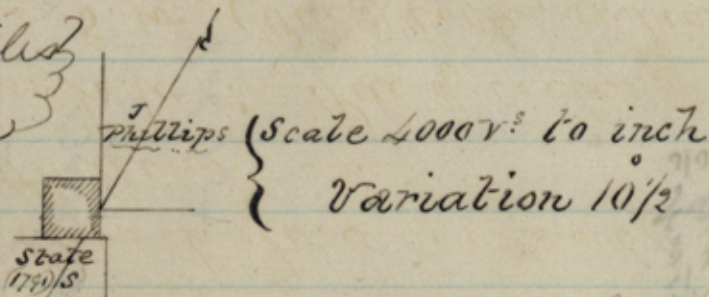 J
Phillips
Scale 4000 vs. to inch
Variation 10°1/2
State
S